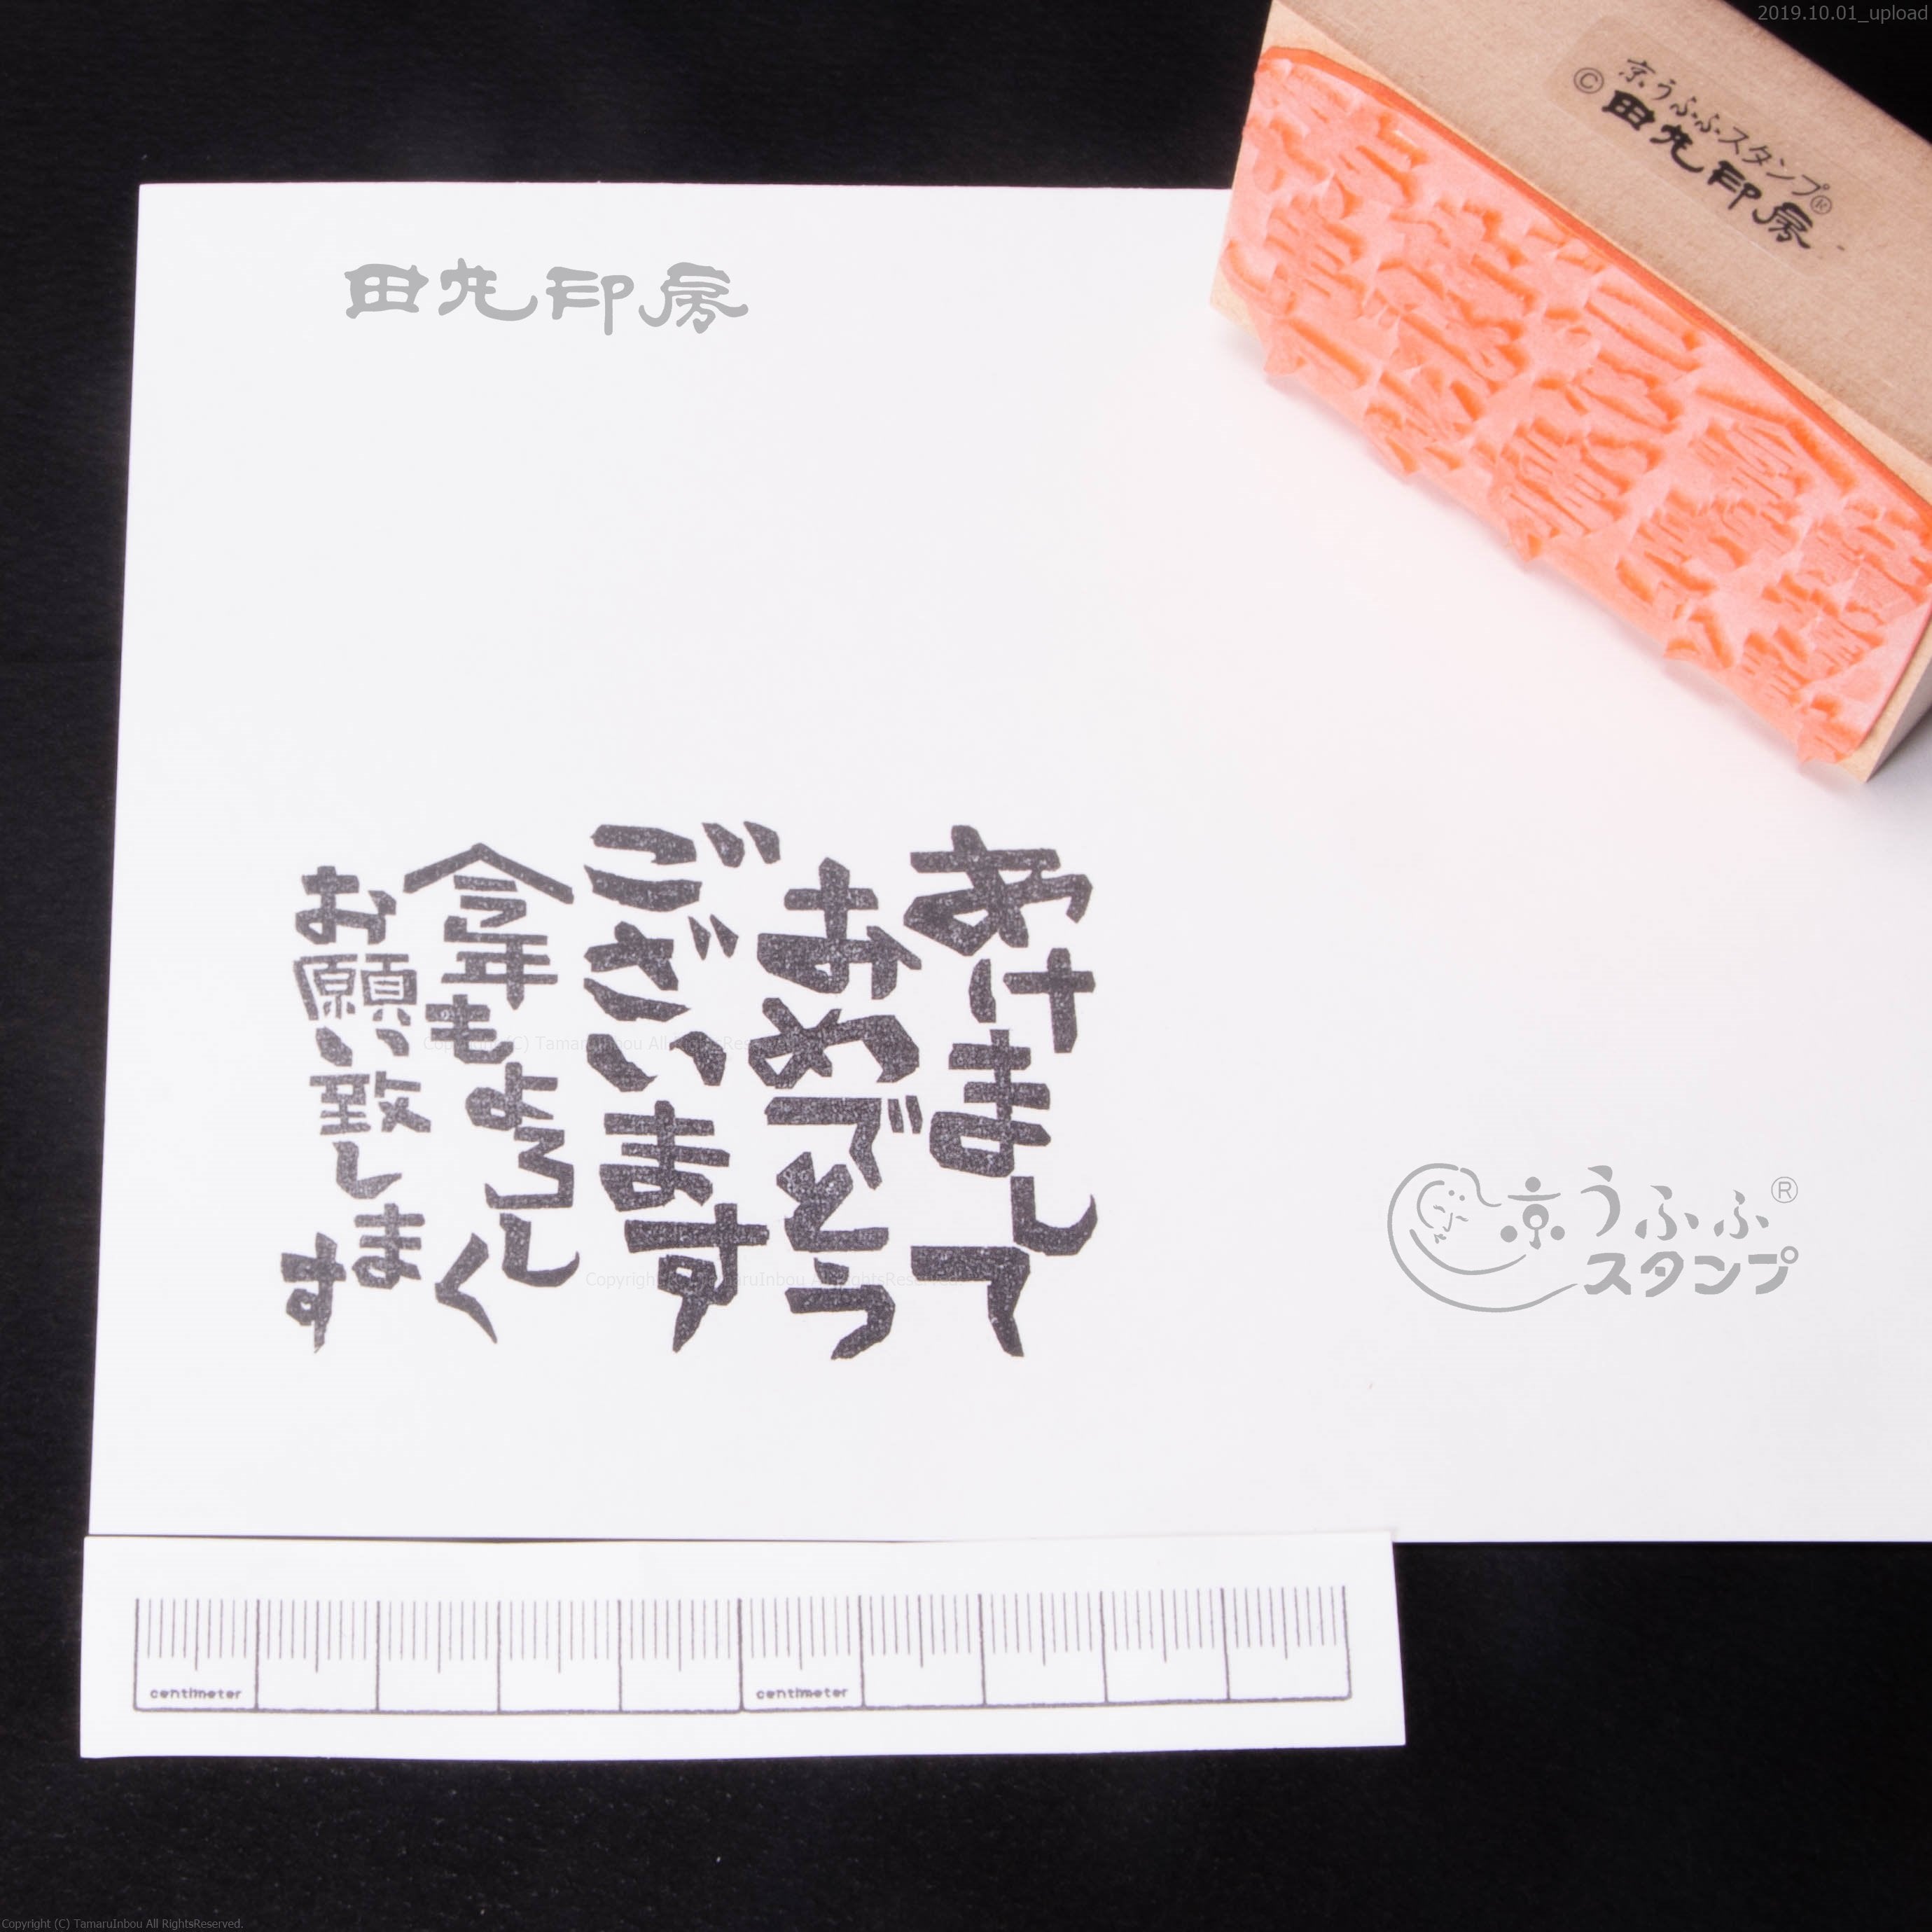 2019.10.01_upload
京うふふスタンプ®
©田丸印房
田丸印房
あけまして
おめでとう
ございます
今年もよろしく
お願い致します
Copyright (C) TamaruInbou All RightsReserved.
京うふふ®
スタンプ
Copyright (C) TamaruInbou All RightsReserved.
centimeter
centimeter
Copyright (C) TamaruInbou All RightsReserved.